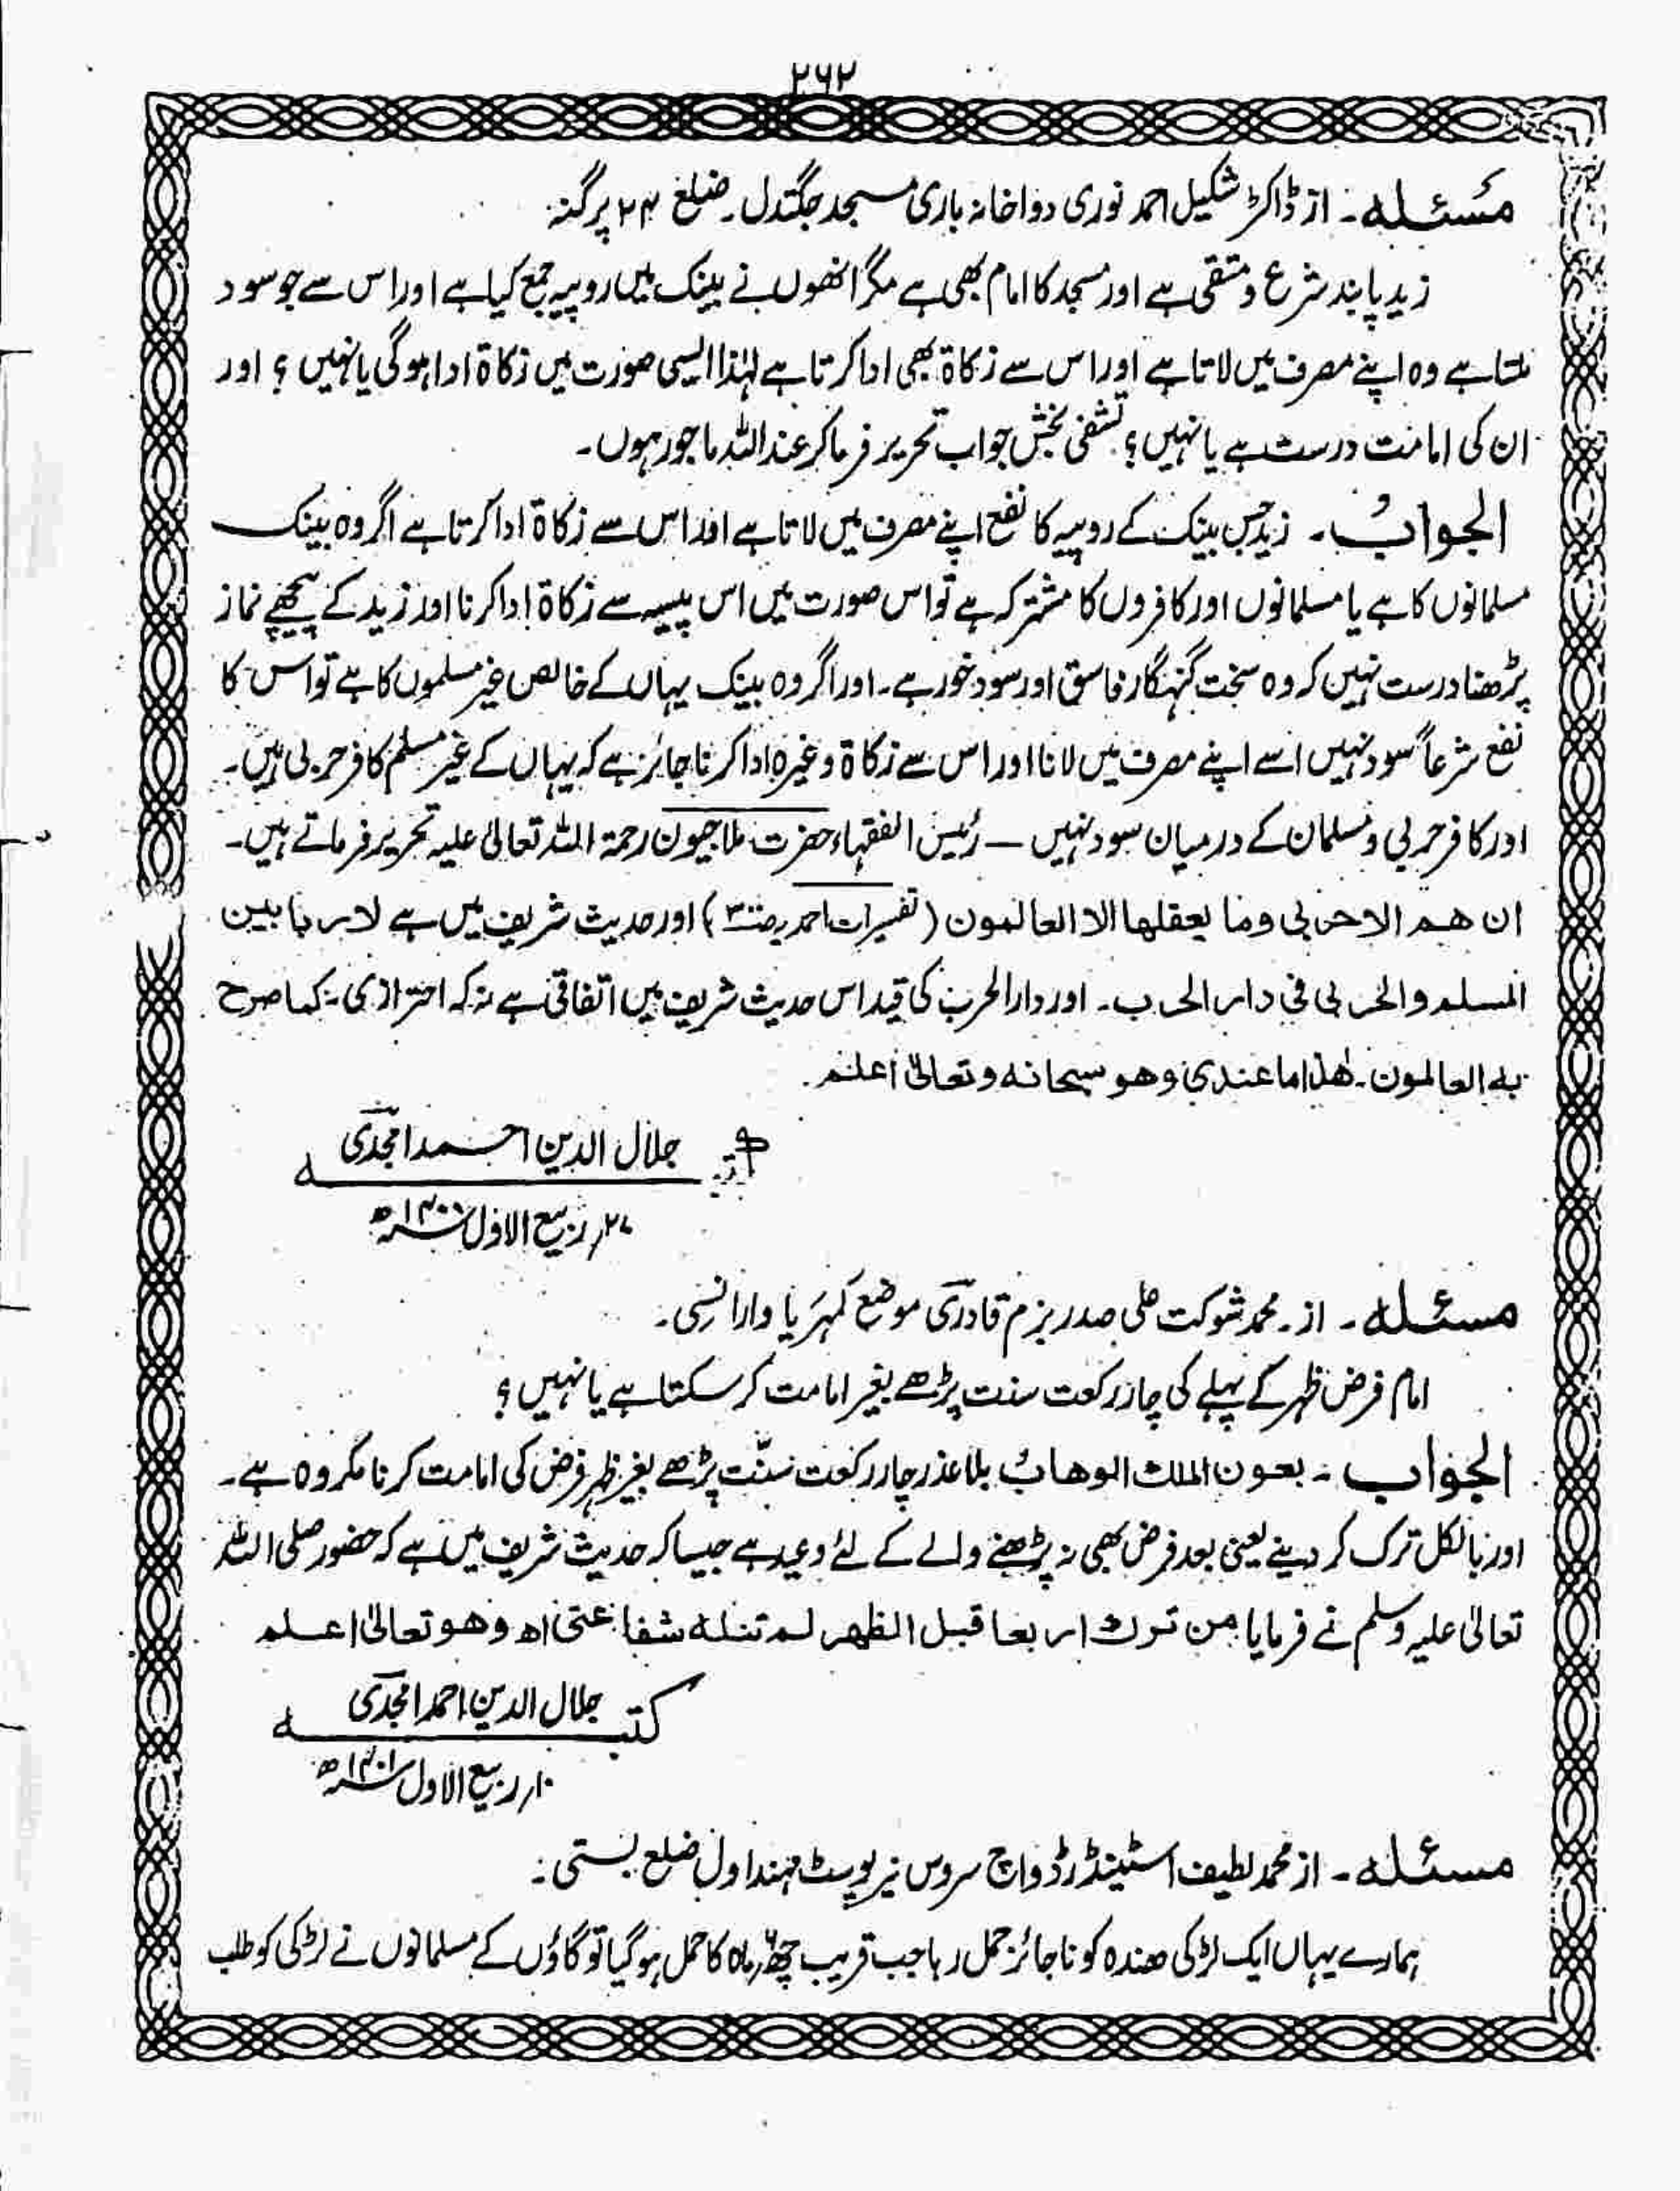 ۲۶۲
مسئلہ۔ از ڈاکٹر شکیل احمد نوری دواخانہ باری مسجد جگتدل۔ ضلع ۲۴ پرگنہ
زید پابند شرع و متقی ہے اور مسجد کا امام بھی ہے مگر انھوں نے بینک میں روپیہ جمع کیا ہے اور اس سے جو سود
ملتا ہے وہ اپنے مصرف میں لاتا ہے اور اس سے زکاۃ بھی ادا کرتا ہے لہٰذا ایسی صورت میں زکاۃ ادا ہوگی یا نہیں ؟ اور
ان کی امامت درست ہے یا نہیں ؟ تشفی بخش جواب تحریر فرما کر عند اللہ ماجور ہوں۔
الجوابُ۔ زید جس بینک کے روپیہ کا نفع اپنے مصرف میں لاتا ہے اور اس سے زکاۃ ادا کرتا ہے اگر وہ بینک
مسلمانوں کا ہے یا مسلمانوں اور کافروں کا مشترکہ ہے تو اس صورت میں اس پیسہ سے زکاۃ ادا کرنا اور زید کے پیچھے نماز
پڑھنا درست نہیں کہ وہ سخت گنہگار فاسق اور سود خور ہے۔ اور اگر وہ بینک یہاں کے خالص غیر مسلموں کا ہے تو اس کا
نفع شرعاً سود نہیں اسے اپنے مصرف میں لانا اور اس سے زکاۃ وغیرہ ادا کرنا جائز ہے کہ یہاں کے غیر مسلم کافر حربی ہیں۔
اور کافر حربی و مسلمان کے درمیان سود نہیں — رئیس الفقہاء حضرت ملا جیون رحمۃ اللہ تعالیٰ علیہ تحریر فرماتے ہیں۔
ان ھم الا حربی وما یعقلھا الا العالمون (تفسیرات احمدیہ ص۳۰۰) اور حدیث شریف میں ہے لا ربا بین
المسلم والحربی فی دار الحرب۔ اور دار الحرب کی قید اس حدیث شریف میں اتفاقی ہے نہ کہ احترازی۔ کما صرح
بہ العالمون۔ ھٰذا ما عندی وھو سبحانہ وتعالیٰ اعلم۔
جلال الدین احمد امجدی
ربیع الاول ۱۴۰۰ھ
مسئلہ۔ از۔ محمد شوکت علی صدر بزم قادری موضع کمہریا وارانسی۔
امام فرض ظہر کے پہلے کی چار رکعت سنت پڑھے بغیر امامت کر سکتا ہے یا نہیں ؟
الجواب۔ بعون الملک الوھابُ بلا عذر چار رکعت سنّت پڑھے بغیر ظہر فرض کی امامت کرنا مکروہ ہے۔
اور بالکل ترک کر دینے یعنی بعد فرض بھی نہ پڑھنے والے کے لئے وعید ہے جیسا کہ حدیث شریف میں ہے کہ حضور صلی اللہ
تعالیٰ علیہ وسلم نے فرمایا من ترک اربعا قبل الظھر لم تنلہ شفاعتی اھ وھو تعالیٰ اعلم
کتبہ جلال الدین احمد امجدی
۱۰؍ ربیع الاول ۱۴۰۱ھ
مسئلہ۔ از محمد لطیف اسٹینڈرڈ واچ سروس نیر پوسٹ مہنداول ضلع بستی۔
ہمارے یہاں ایک لڑکی ھندہ کو ناجائز حمل رہا جب قریب چھ ماہ کا حمل ہو گیا تو گاؤں کے مسلمانوں نے لڑکی کو طلب